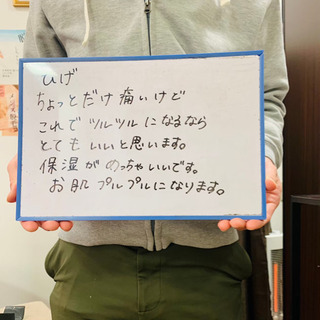 ひげ
ちょっとだけ痛いけど
これでツルツルになるなら
とてもいいと思います。
保湿がめっちゃいいです。
お肌プルプルになります。